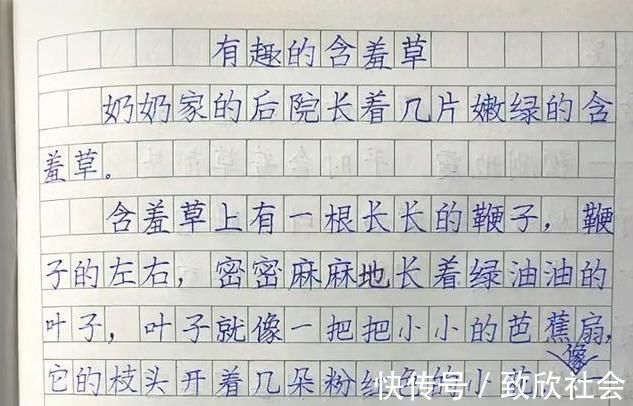 有趣的含羞草
奶奶家的后院长着几片嫩绿的含
羞草。
含羞草上有一根长长的鞭子，鞭
子的左右，密密麻麻地长着绿油油的
叶子，叶子就像一把把小小的芭蕉扇，
像
它的枝头开着几朵粉红色的小
快传号/致欣社会